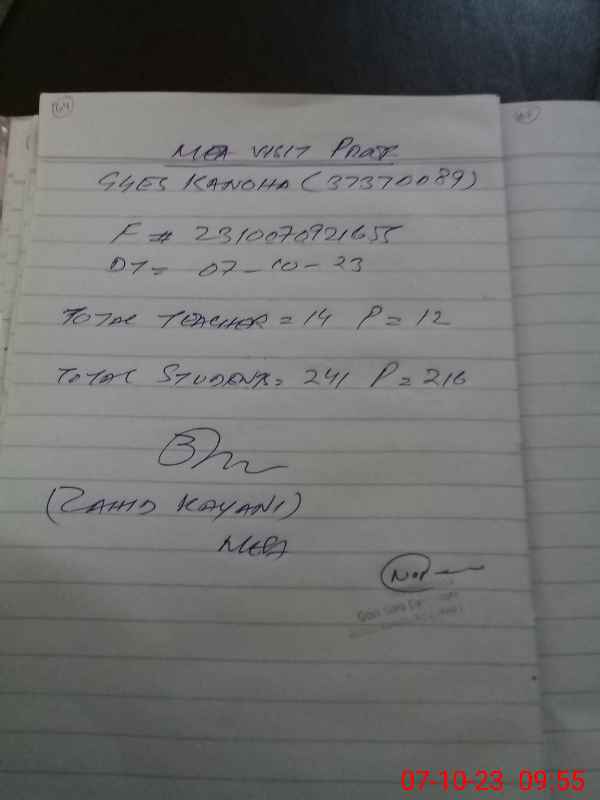 64
MEA VISIT PROOF
GGES KANOHA (37370089)
F # 2310070921655
DT = 07-10-23
TOTAL TEACHER = 14 P = 12
TOTAL STUDENTS = 241 P = 216
(ZAHID KAYANI)
MEA
07-10-23 09:55